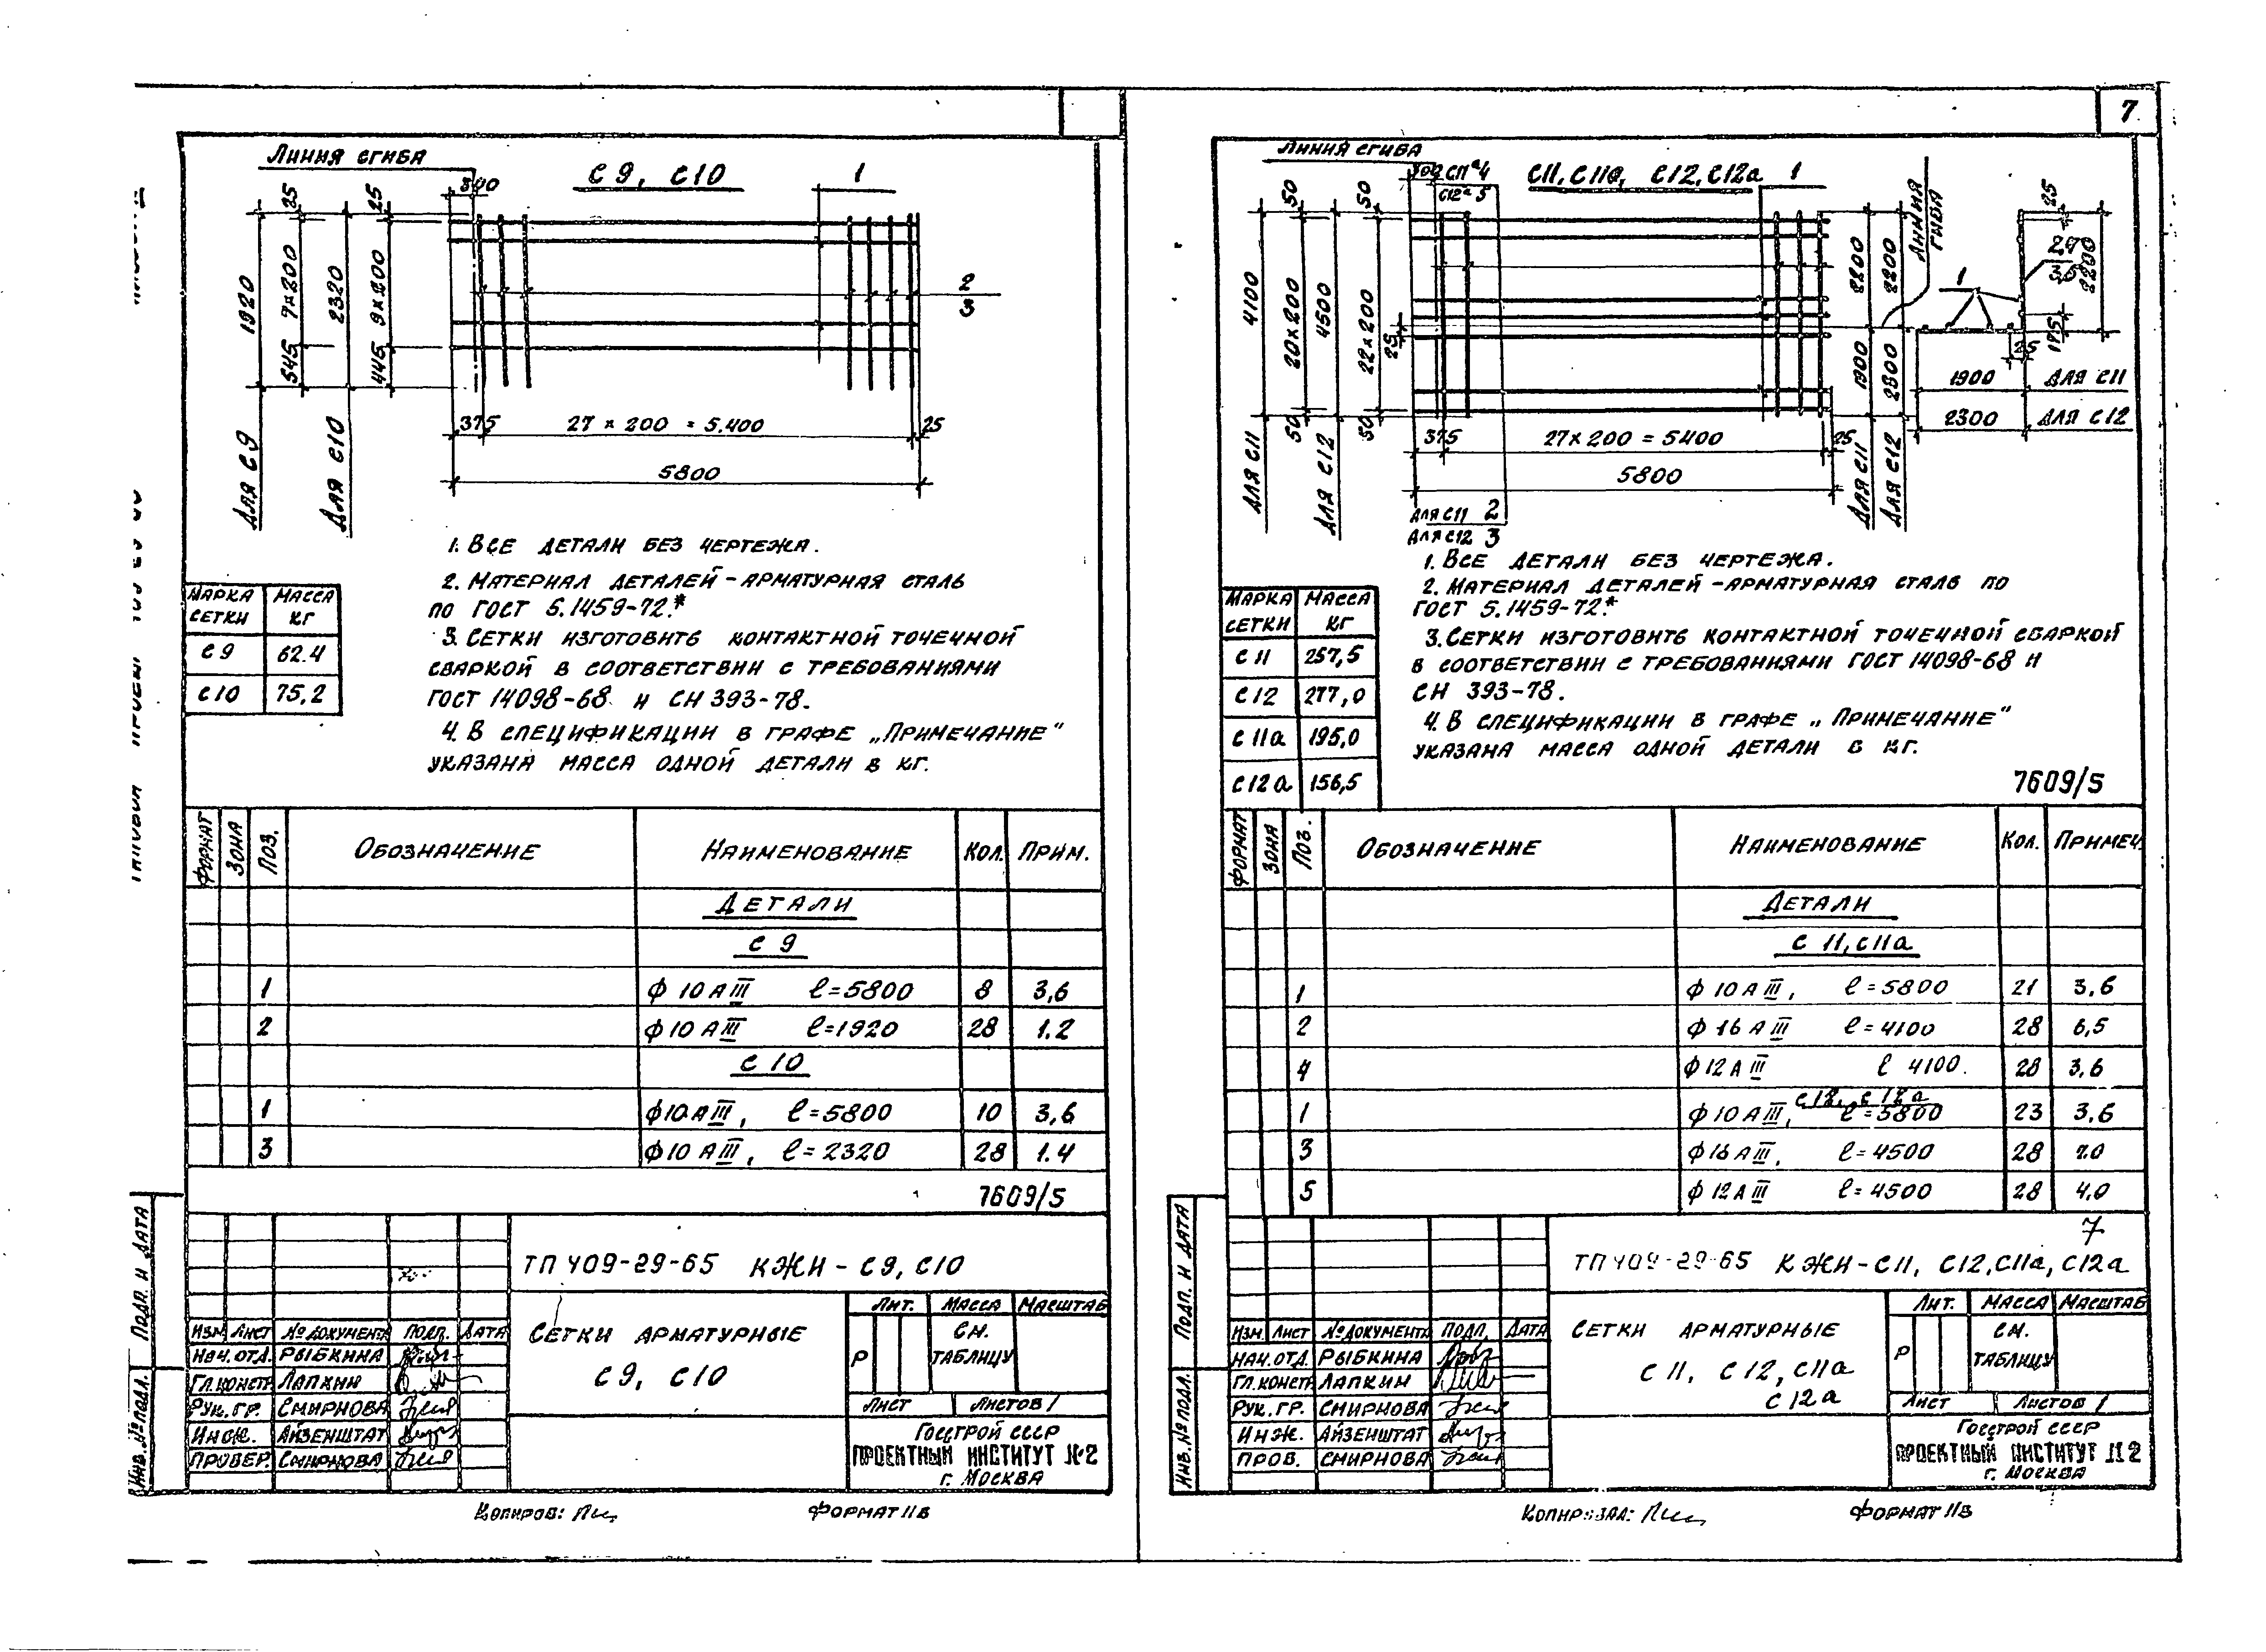 Линия сгиба
С 9, С10
1
25
25
1920
545 7×200
2320
445 9×200
2
3
375
27 × 200 = 5.400
25
5800
Для С9
Для С10
1. Все детали без чертежа.
2. Материал деталей – арматурная сталь
по ГОСТ 5.1459-72.*
3. Сетки изготовить контактной точечной
сваркой в соответствии с требованиями
ГОСТ 14098-68 и СН 393-78.
4. В спецификации в графе „Примечание"
указана масса одной детали в кг.
Марка сетки Масса кг
С 9 62.4
С 10 75,2
Формат Зона Поз. Обозначение Наименование Кол. Прим.
Детали
С 9
1 ф 10 А III ℓ=5800 8 3,6
2 ф 10 А III ℓ=1920 28 1.2
С 10
1 ф10 А III, ℓ=5800 10 3,6
3 ф10 А III, ℓ=2320 28 1.4
7609/5
ТП 409-29-65 КЖИ – С9, С10
Сетки арматурные
С 9, С10
Лит. Масса Масштаб
Р См. таблицу
Лист Листов 1
Изм. Лист № документа Подп. Дата
Нач. отд. Рыбкина
Гл. констр. Лапкин
Рук. гр. Смирнова
Инж. Айзенштат
Провер. Смирнова
Госстрой СССР
Проектный институт №2
г. Москва
Подп. и дата
Инв. № подл.
Копиров:
Формат 11В
7
Линия сгиба
С11ª 4
С12ª 5
С11, С11а, С12, С12а
1
Линия гиба
50
50
4100
20×200
4500
22×200
25
50
50
2200
2200
1900
2300
Для С11
Для С12
375
27×200 = 5400
25
5800
Для С11
Для С12
Для С11 2
Для С12 3
1
25
2200
175
25
1900 Для С11
2300 Для С12
1. Все детали без чертежа.
2. Материал деталей – арматурная сталь по
ГОСТ 5.1459-72.*
3. Сетки изготовить контактной точечной сваркой
в соответствии с требованиями ГОСТ 14098-68 и
СН 393-78.
4. В спецификации в графе „Примечание"
указана масса одной детали в кг.
Марка сетки Масса кг
С 11 257,5
С 12 277,0
С 11а 195,0
С12а 156,5
7609/5
Формат Зона Поз. Обозначение Наименование Кол. Примеч.
Детали
С 11, С11а
1 ф 10 А III, ℓ=5800 21 3,6
2 ф 16 А III ℓ=4100 28 6,5
4 ф 12 А III ℓ 4100. 28 3,6
С12, С 12а
1 ф 10 А III, ℓ=5800 23 3,6
3 ф 16 А III, ℓ=4500 28 7.0
5 ф 12 А III ℓ=4500 28 4,0
7
ТП 409-29-65 КЖИ – С11, С12, С11а, С12а
Сетки арматурные
С 11, С 12, С11а
С 12а
Лит. Масса Масштаб
Р См. таблицу
Лист Листов 1
Изм. Лист № документа Подп. Дата
Нач. отд. Рыбкина
Гл. констр Лапкин
Рук. гр. Смирнова
Инж. Айзенштат
Пров. Смирнова
Госстрой СССР
Проектный институт №2
г. Москва
Подп. и дата
Инв. № подл.
Копировал:
Формат 11В